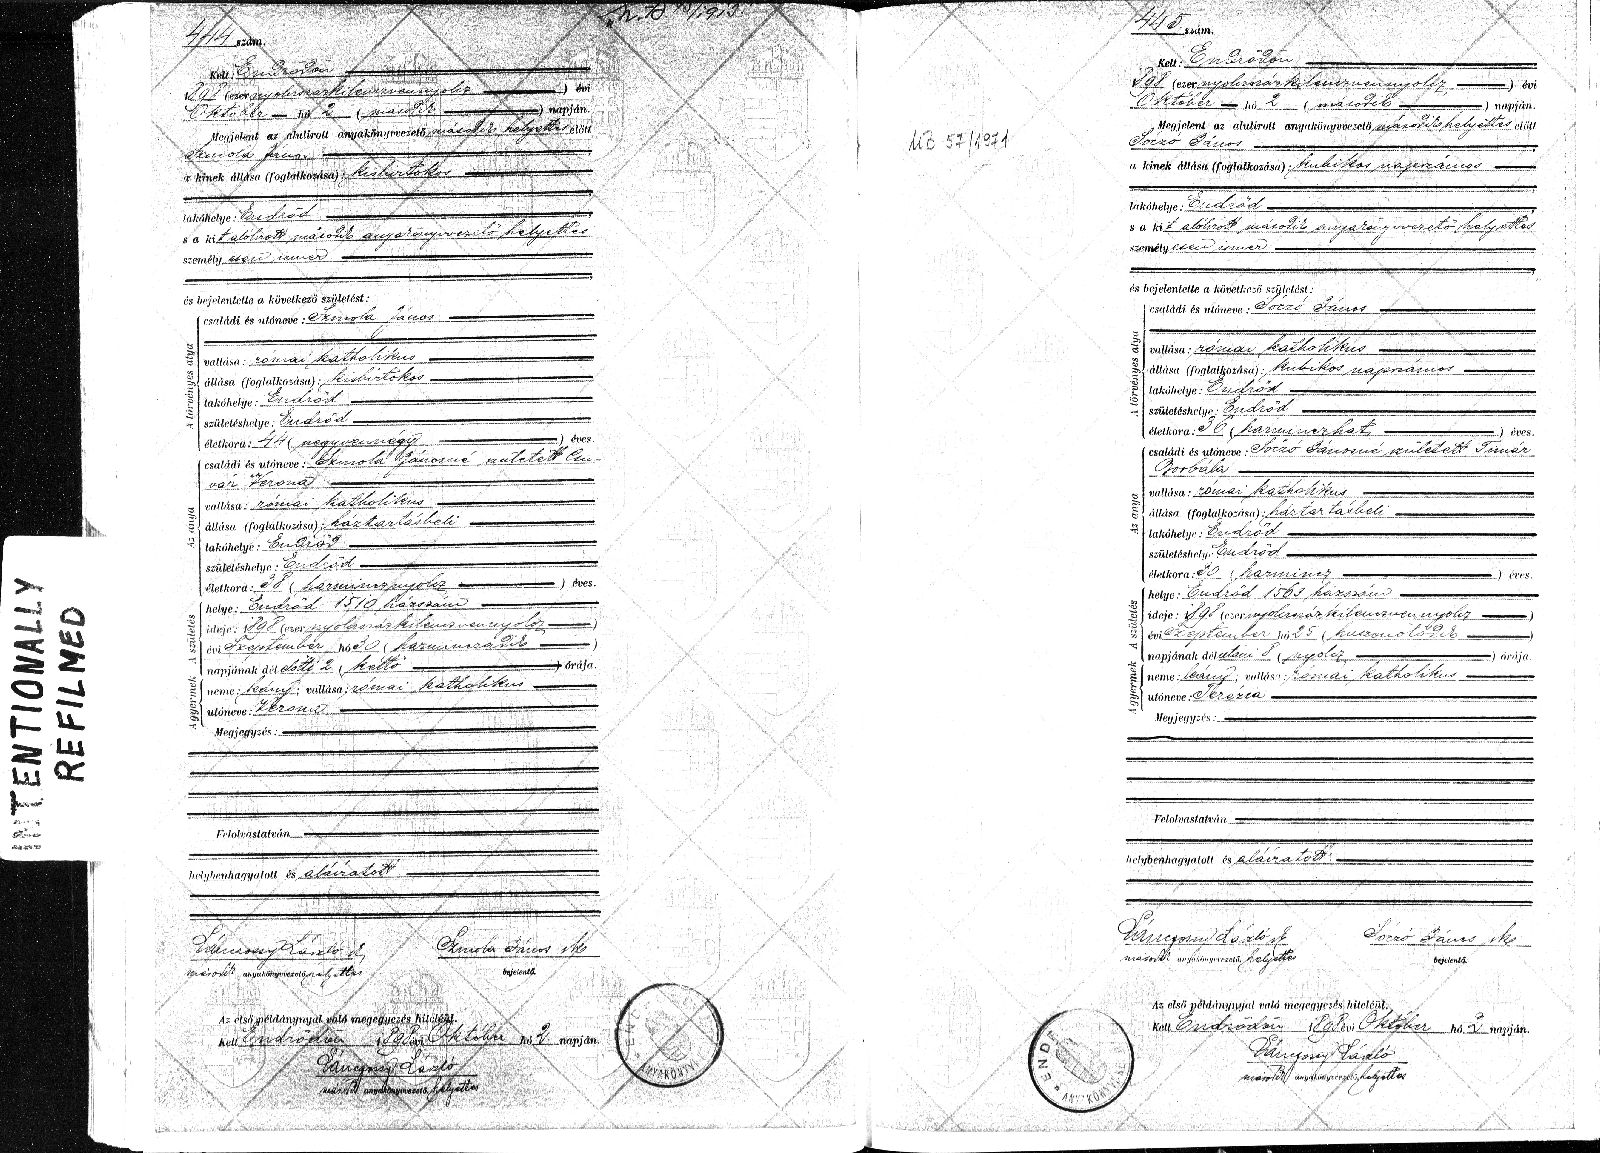 INTENTIONALLY
REFILMED
444 szám.
Kelt: Endrődön
1898 (ezernyolczszázkilenczvennyolcz) évi
Október hó 2 (második) napján.
Megjelent az alulirott anyakönyvvezető második helyettes előtt
Szmola János
a kinek állása (foglalkozása): kisbirtokos
lakóhelye: Endrőd
s a kit alólirott második anyakönyvvezető helyettes
személyesen ismer
és bejelentette a következő születést:
A törvényes atya
családi és utóneve: Szmola János
vallása: római katholikus
állása (foglalkozása): kisbirtokos
lakóhelye: Endrőd
születéshelye: Endrőd
életkora: 44 (negyvennégy) éves.
Az anya
családi és utóneve: Szmola Jánosné született
Verona
vallása: római katholikus
állása (foglalkozása): háztartásbeli
lakóhelye: Endrőd
születéshelye: Endrőd
életkora: 38 (harmincznyolcz) éves.
A születés
helye: Endrőd 1510 házszám
ideje: 1898 (ezernyolczszázkilenczvennyolcz)
évi Szeptember hó 30 (harminczadik)
napjának délelőtti 2 (kettő) órája.
A gyermek
neme: leány; vallása: római katholikus
utóneve: Verona
Megjegyzés:
Felolvastatván
helybenhagyatott és aláiratott
László h.
második anyakönyvvezető, helyettes
Szmola János mk
bejelentő.
Az első példánynyal való megegyezés hiteléül.
Kelt Endrődön 1898 évi Október hó 2 napján.
László
második anyakönyvvezető, helyettes
MB 57/1971
445 szám.
Kelt: Endrődön
1898 (ezernyolczszázkilenczvennyolcz) évi
Október hó 2 (második) napján.
Megjelent az alulirott anyakönyvvezető második helyettes előtt
Sóczó János
a kinek állása (foglalkozása): kubikos napszámos
lakóhelye: Endrőd
s a kit alólirott második anyakönyvvezető helyettes
személyesen ismer
és bejelentette a következő születést:
A törvényes atya
családi és utóneve: Sóczó János
vallása: római katholikus
állása (foglalkozása): kubikos napszámos
lakóhelye: Endrőd
születéshelye: Endrőd
életkora: 36 (harminczhat) éves.
Az anya
családi és utóneve: Sóczó Jánosné született Timár
Borbála
vallása: római katholikus
állása (foglalkozása): háztartásbeli
lakóhelye: Endrőd
születéshely: Endrőd
életkora: 30 (harmincz) éves.
A születés
helye: Endrőd 1563 házszám
ideje: 1898 (ezernyolczszázkilenczvennyolcz)
évi Szeptember hó 25 (huszonötödik)
napjának délutáni 8 (nyolcz) órája.
A gyermek
neme: leány; vallása: római katholikus
utóneve: Terézia
Megjegyzés:
Felolvastatván
helybenhagyatott és aláiratott
László h.
második anyakönyvvezető, helyettes
Sóczó János mk
bejelentő.
Az első példánynyal való megegyezés hiteléül.
Kelt Endrődön 1898 évi Október hó 2 napján.
László
második anyakönyvvezető, helyettes